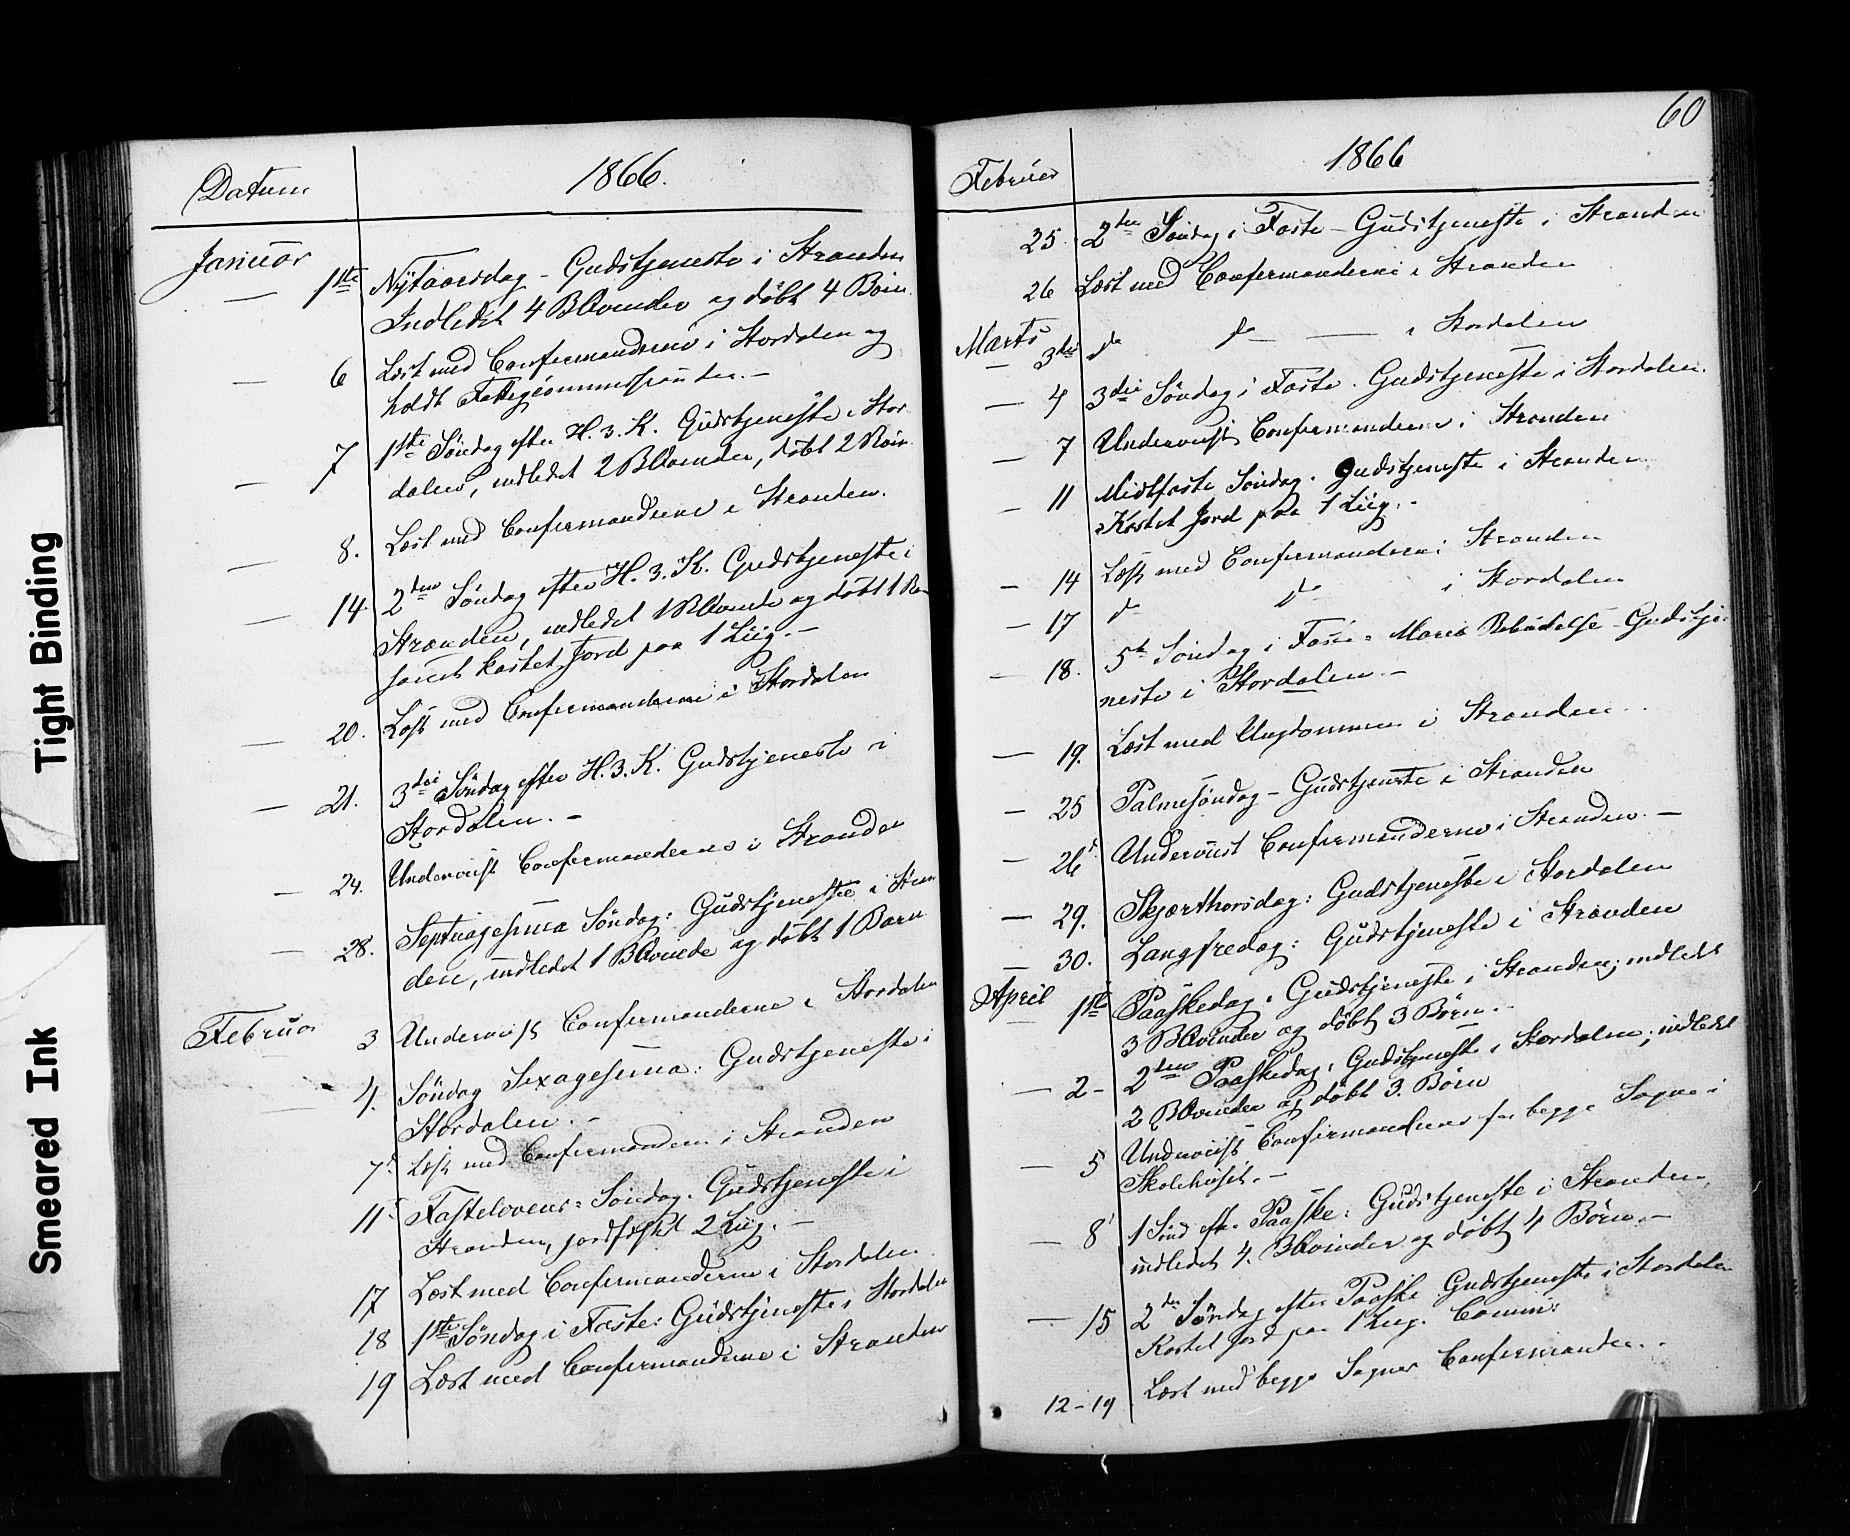 Tight Binding
Smeared Ink
Datum
1866.
Januar
— 1ste Nytaarsdag - Gudstjeneste i Stranden
Indledet 4 BQvinder og døbt 4 Børn
— 6 Læst med Confirmanderne i Stordalen og
holdt
— 7 1ste Søndag efter H. 3. K. Gudstjeneste i Stor
dalen, indledet 2 BQvinder, døbt 2 Børn
— 8. Læst med Confirmanderne i Stranden.
— 14 2den Søndag efter H. 3. K. Gudstjeneste i
Stranden, indledet 1 BQvinde og døbt 1 Barn
samt kastet Jord paa 1 Liig. —
— 20. Læst med Confirmanderne i Stordalen
— 21. 3die Søndag efter H. 3. K. Gudstjeneste i
Stordalen. —
— 24. Underviist Confirmanderne i Stranden
— 28. Septuagesima Søndag: Gudstjeneste i Stran
den, indledet 1 BQvinde og døbt 1 Barn
Februar 3 Underviist Confirmanderne i Stordalen
4. Søndag Sexagesima: Gudstjeneste i
Stordalen. —
7 Læst med Confirmanderne i Stranden
11 Fastelavens-Søndag. Gudstjeneste i
Stranden, jordfæstet 2 Liig. —
17 Læst med Confirmanderne i Stordalen
18 1ste Søndag i Faste: Gudstjeneste i Stordalen
19 Læst med Confirmanderne i Stranden
60
Februar
1866
25 2den Søndag i Faste - Gudstjeneste i Stranden
26 Læst med Confermanderne i Stranden
Marts
— 3die do do — i Stordalen
— 4 3die Søndag i Faste. Gudstjeneste i Stordalen.
— 7 Underviist Confermanderne i Stranden
— 11 Midtfaste Søndag. Gudstjeneste i Stranden
Kastet Jord paa 1 Liig. -
— 14 Læst med Confermanderne i Stranden
— 17 do do i Stordalen
— 18. 5te Søndag i Faste = Maria Bebudelse - Gudstje-
neste i Stordalen. —
— 19. Læst med Ungdommen i Stranden.
— 25 Palmesøndag - Gudstjeneste i Stranden
— 26 Underviist Confermanderne i Stranden. —
— 29. Skjærthorsdag: Gudstjeneste i Stordalen
— 30. Langfredag: Gudstjeneste i Stranden
April 1ste Paaskedag. Gudstjeneste i Stranden; indledt
3 BQvinder og døbt 3 Børn. -
— 2 - 2den Paaskedag, Gudstjeneste i Stordalen; indledet
2 BQvinder og døbt 3. Børn
— 5 Underviist Confirmanderne for begge Sogne i
Skolehuset. —
— 8 1 Sønd eft. Paaske: Gudstjeneste i Stranden,
indledet 4. BQvinder og døbt 4 Børn. —
— 15 2den Søndag efter Paaske Gudstjeneste i Stordalen
Kastet Jord paa 1 Liig. Comm:
12 - 19 Læst med begge Sognes Confermander. .